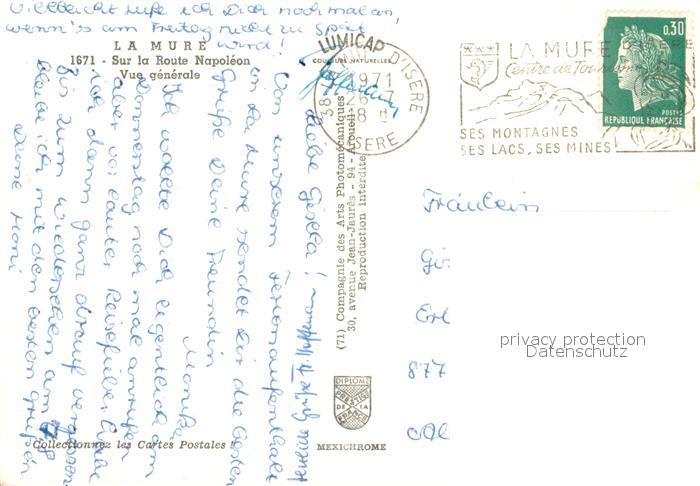 Vielleicht rufe ich Dich noch mal an,
wenn's am Freitag nicht zu spät
wird!
LA MURE
1671 - Sur la Route Napoléon
Vue générale
LUMICAP
COULEURS NATURELLES
D'ISERE
1971
26-7
18 H
38
ISERE
LA MURE D'ISERE
Centre de Tourisme
SES MONTAGNES
SES LACS, SES MINES
0.30
POSTES
REPUBLIQUE FRANÇAISE
Liebe Gisela!
Von unserem Ferienaufenthalt
in La Mure sendet Dir die besten
Grüße Deine Freundin
Monika
Ich wollte Dich eigentlich am
Donnerstag noch mal anrufen
aber vor lauter Reisefieber habe
ich dann ganz darauf vergessen
Bis zum Wiedersehen am
bleibe ich mit den besten Grüßen
Deine Moni
(71) Compagnie des Arts Photomécaniques
30, avenue Jean-Jaurès - 94 - Arcueil
Reproduction interdite
Fräulein
Gi
Erl
877
privacy protection
Datenschutz
DIPLOME
PRESTIGE
DE LA
FRANCE
Collectionnez les Cartes Postales !
MEXICHROME